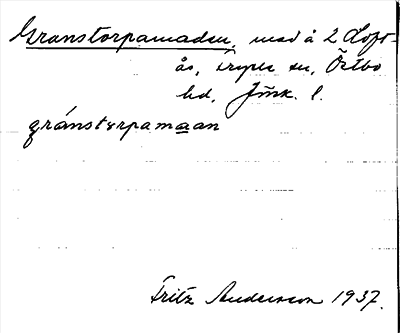 Granstorpamaden, mad å 2 Loft-
ås, Gryts sn, Östbo
hd, Jönk. l.
gránstɛrpamaan
Fritz Andersson 1937.